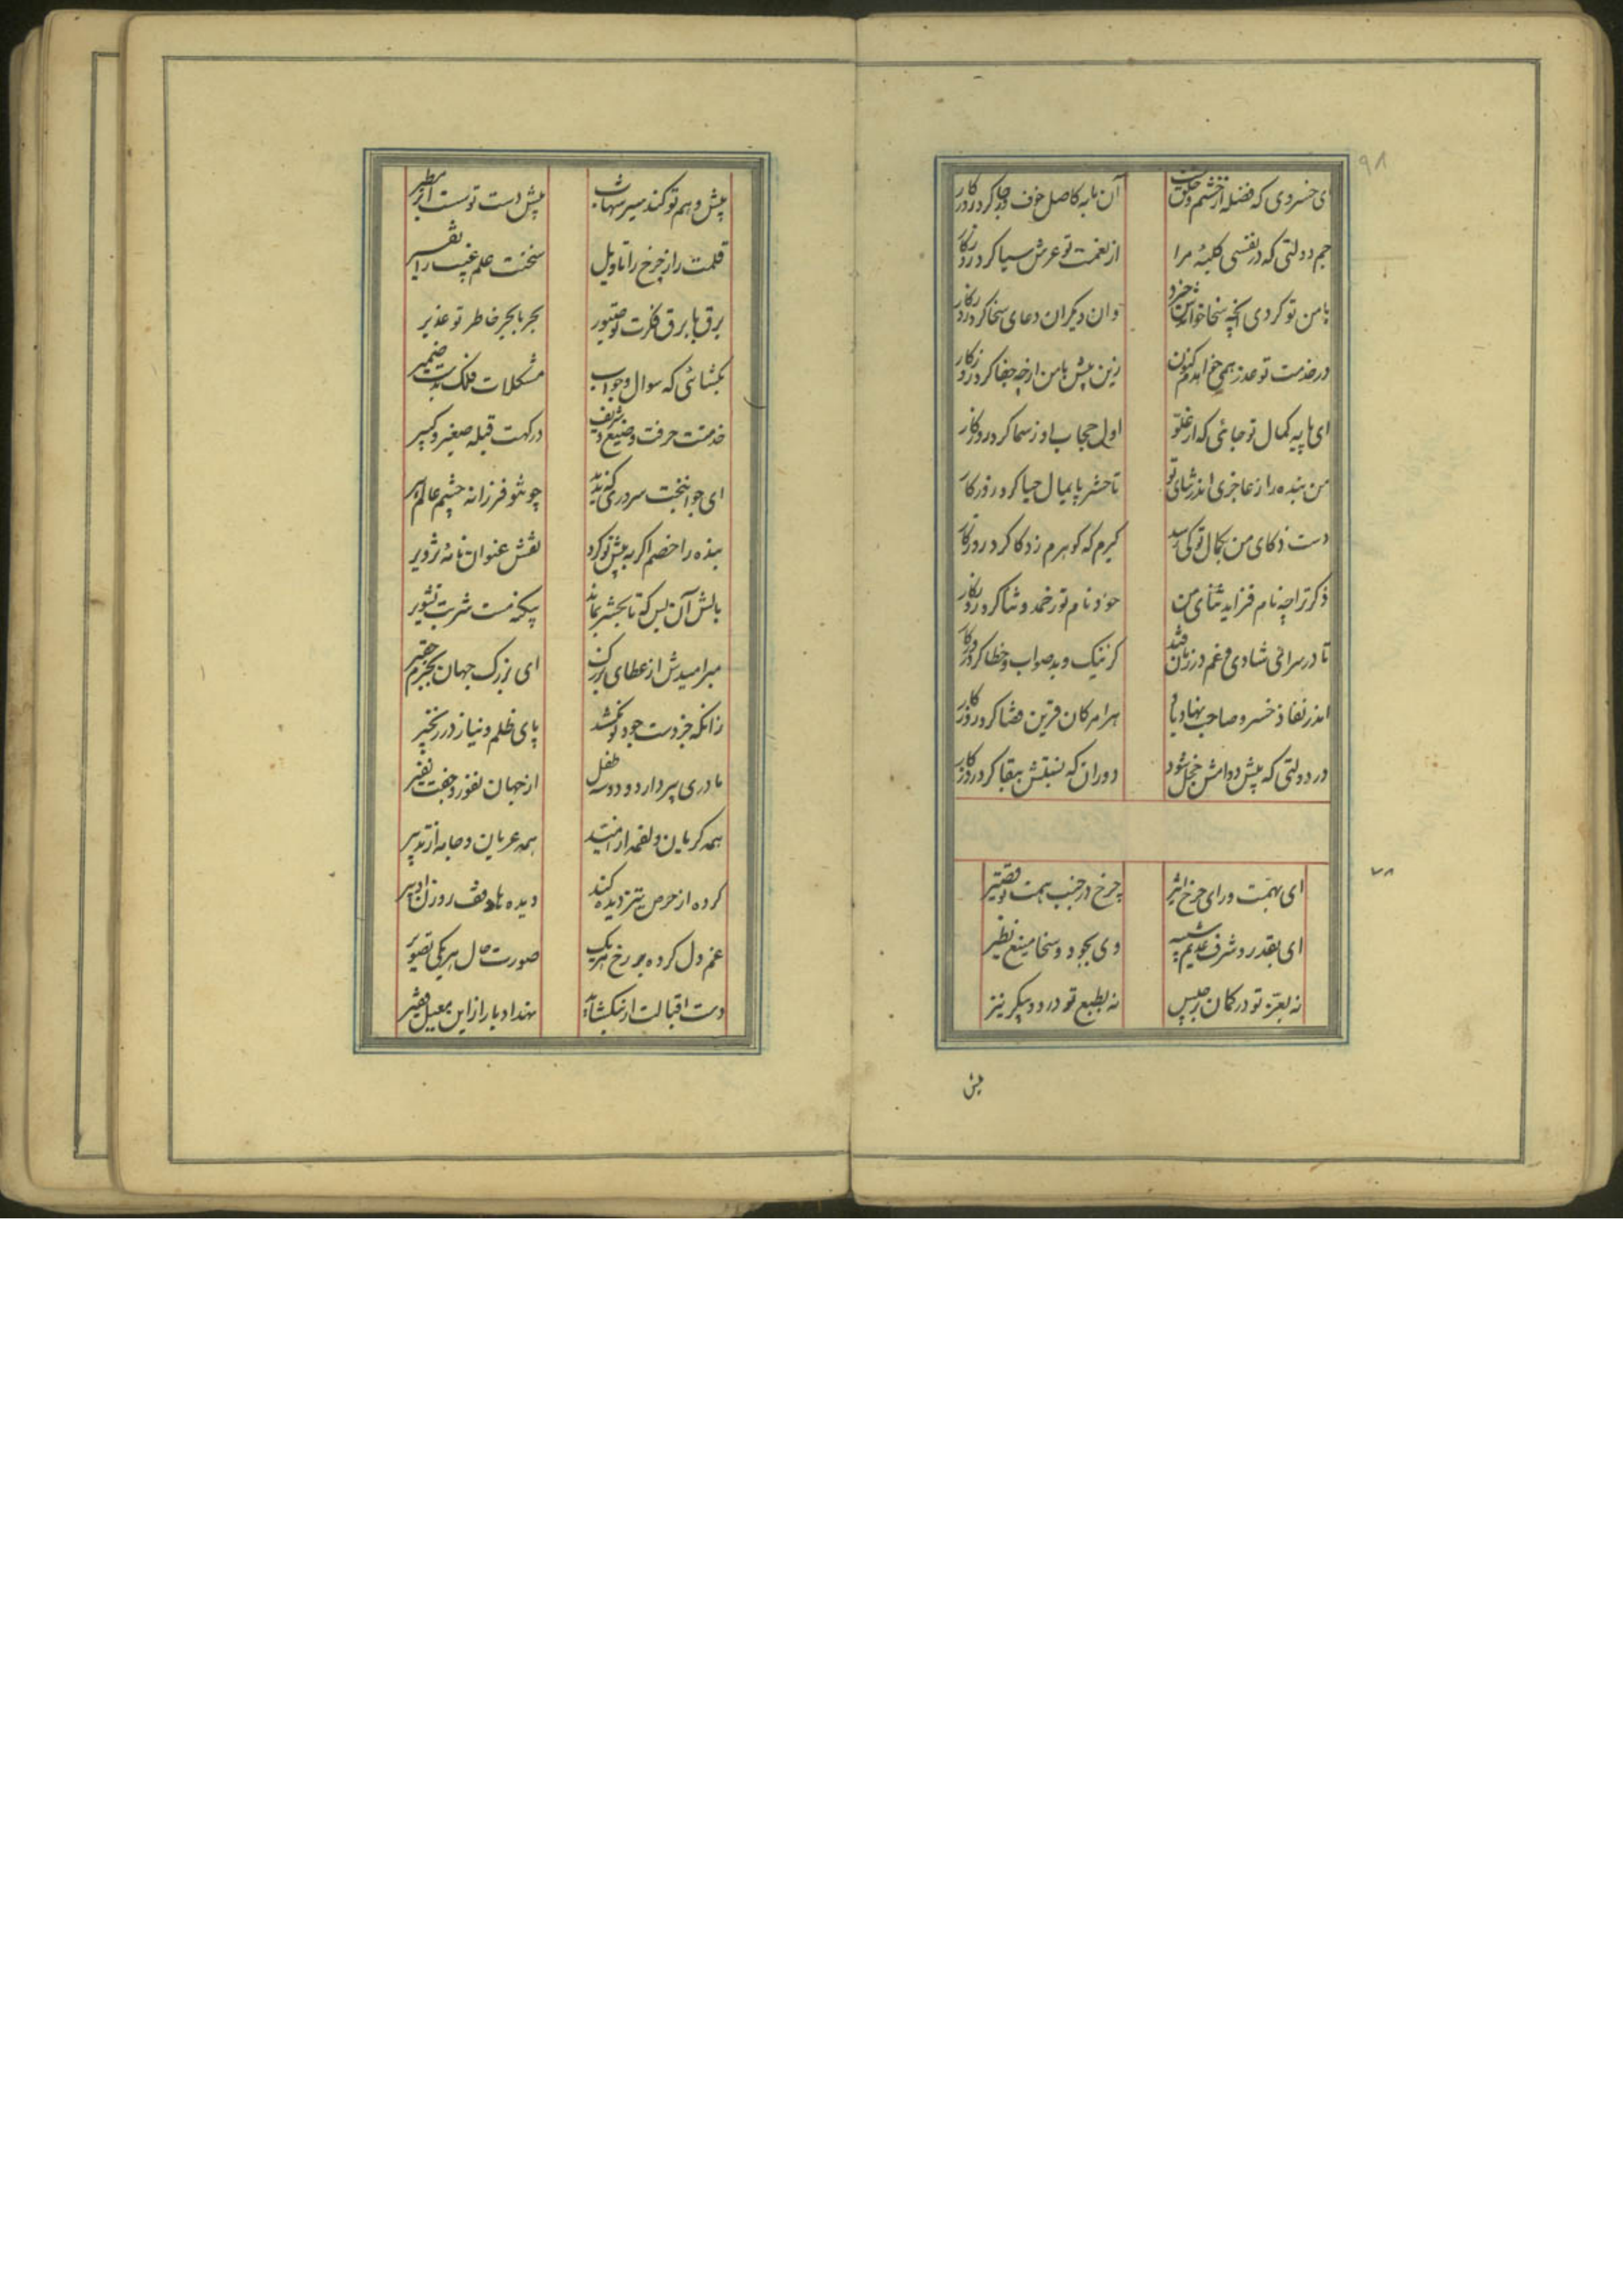 ۹۸
ای خسروی که فضله از خشم و خلق تست آن مایه کاصل خوف و رجا کرد روزگار
جم دولتی که در نفسی کلبهٔ مرا از نعمت تو عرش سبا کرد روزگار
با من تو کردی آنچه سخا خواندش خرد وان دیگران دعای سخا کرد روزگار
در خدمت تو عذر همی خواهدم کنون زین پیش با من ارچه جفا کرد روزگار
ای پایه کمال تو جائی که از علو اول حجاب او ز سما کرد روزگار
من بنده را ز عاجزی اندر ثنای تو تا حشر پایمال حیا کرد روزگار
دست ذکای من بکمال تو کی رسد گیرم که گوهرم ز ذکا کرد روزگار
ذکر ترا چه نام فزاید ثنای من خود نام تو ز حمد و ثنا کرد روزگار
تا در سرای شادی و غم در زبان فتد کز نیک و بد صواب و خطا کرد روزگار
اندر نفاذ خسرو صاحب نهاد باد هر امر کان قرین قضا کرد روزگار
در دولتی که پیش دوامش خجل شود دوران که نسبتش ببقا کرد روزگار
۷۸
ای بهمت ورای چرخ اثیر چرخ در جنب همت تو قصیر
ای بقدر و شرف عدیم شبیه وی بجود و سخا منیع نظیر
نه بعز تو در کمان برجیس نه بطبع تو در دو پیکر تیر
پیش
پیش وهم تو کند سیر شهاب پیش دست تو سست ابر مطیر
قلمت راز چرخ را تاویل سخنت علم غیب را تفسیر
برق با برق فکرت تو صبور بحر با بحر خاطر تو غدیر
بگشائی گه سوال و جواب مشکلات فلک بدست ضمیر
خدمتت حرفت وضیع و شریف درگهت قبله صغیر و کبیر
ای جوانبخت سروری که ندید چو تو فرزانه چشم عالم پیر
بنده را خصم اگر به پیش تو کرد نقش عنوان نامهٔ تزویر
بالش آن بس که تا بحشر بماند بیگنه مست شربت تشویر
مبر امیدش از عطای بزرگ ای بزرگ جهان بجرم حقیر
زانکه جز دست جود تو نکشد پای ظلم و نیاز در زنجیر
مادری پیر دارد و دو سه طفل از جهان نفور و جفت نفیر
همه گریان و لقمه از امید همه عریان و جامه از تدبیر
کرده از حرص تیز دیده کند دیده‌ها وقف روزن ادبیر
غم دل کرده بر رخ هر یک صورت حال هر یکی تصویر
دست اقبالت ار نبگشاید بند ادبار از این معیل فقیر